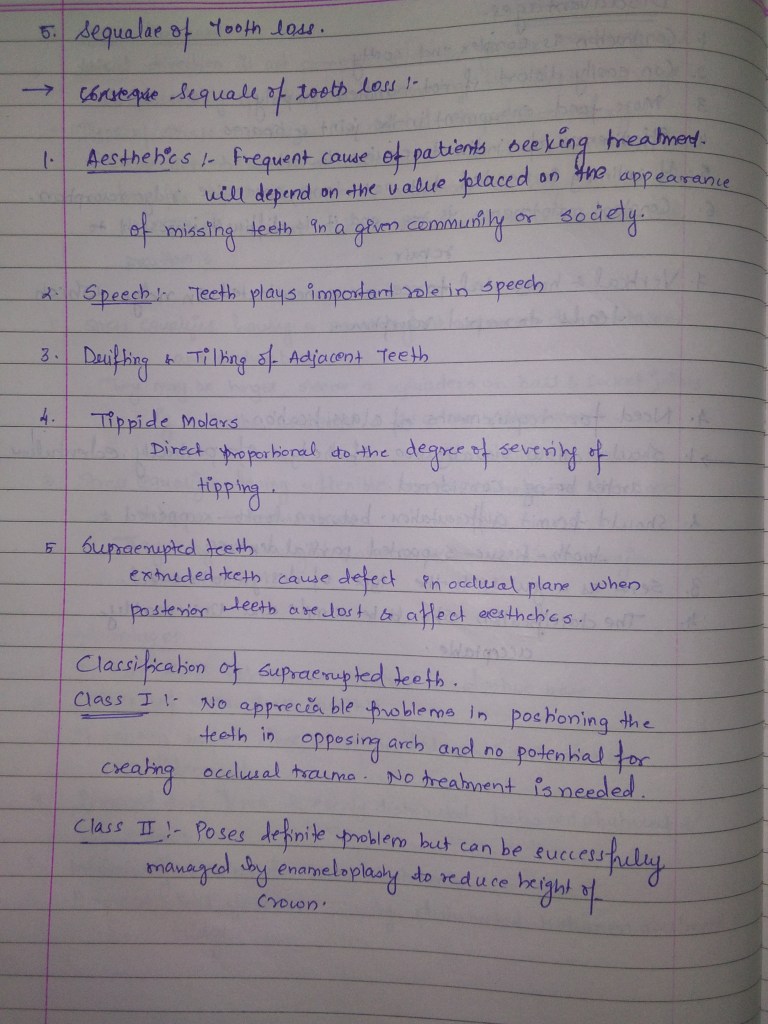 5. Sequalae of Tooth loss.
→ Sequale of tooth loss :-
1. Aesthetics :- Frequent cause of patients seeking treatment.
will depend on the value placed on the appearance
of missing teeth in a given community or society.
2. Speech :- Teeth plays important role in speech
3. Drifting & Tilting of Adjacent Teeth
4. Tippide Molars
Direct proportional to the degree of severity of
tipping.
5 Supraerupted teeth
extruded teeth cause defect in occlusal plane when
posterior teeth are lost & affect aesthetics.
Classification of supraerupted teeth.
Class I :- No appreciable problems in positioning the
teeth in opposing arch and no potential for
creating occlusal trauma. No treatment is needed.
Class II :- Poses definite problem but can be successfully
managed by enameloplasty to reduce height of
crown.